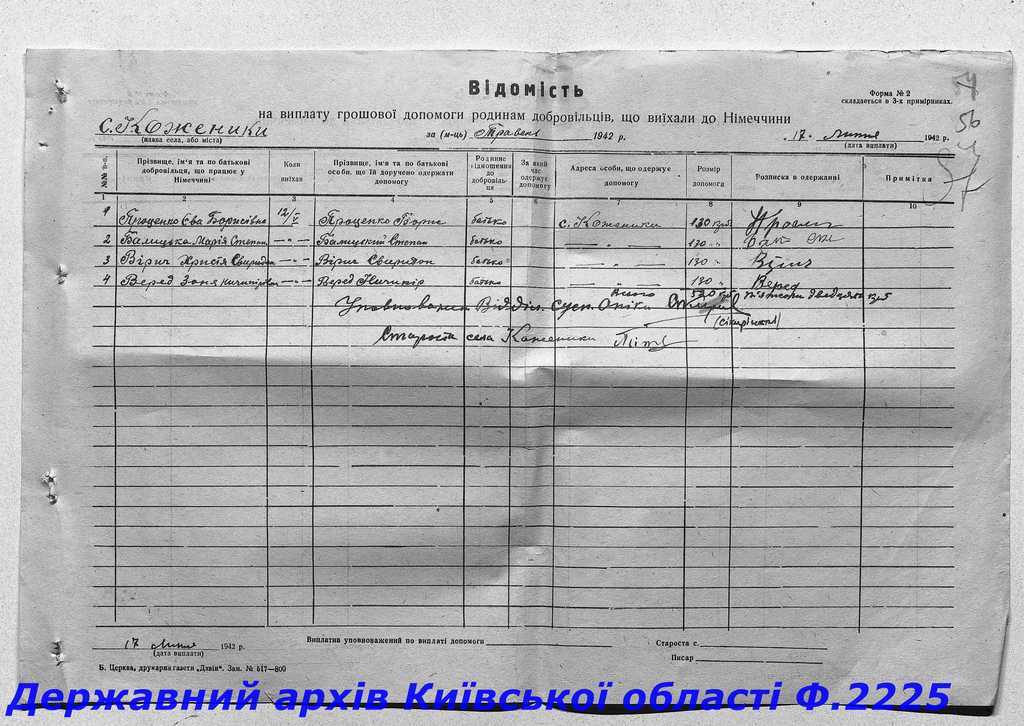 Відомість
Форма № 2
складається в 3-х примірниках.
на виплату грошової допомоги родинам добровільців, що виїхали до Німеччини
56
с. Коженики
(назва села, або міста)
за (м-ць) Травень 1942 р.
17. Липня 1942 р.
(дата виплати)
№№ п.п.
Прізвище, ім'я та по батькові добровільця, що працює у Німеччині
Коли виїхав
Прізвище, ім'я та по батькові особи, що їй доручено одержати допомогу
Родинне відношення до добровільця
За який час одержує допомогу
Адреса особи, що одержує допомогу
Розмір допомоги
Розписка в одержанні
Примітка
1 2 3 4 5 6 7 8 9 10
1 Проценко Єва Борисівна 12/V Проценко Борис батько с. Коженики 130 крб.
2 Балицька Марія Степан. —"— Балицький Степан батько —"— 130 "
3 Вірич Христя Свиридон —"— Вірич Свиридон батько —"— 130 "
4 Веред Зоня Ничипірівна —"— Веред Ничипір батько —"— 130 " Веред
Всього 520 крб п'ятсот двадцять крб
Уповноважен. Відділ. Сусп. Опіки
Староста села Коженики
17 Липня 1942 р.
(дата виплати)
Виплатив уповноважений по виплаті допомоги
Староста с.
Писар
Б. Церква, друкарня газети „Дзвін“. Зам. № 617—800
Державний архів Київської області Ф.2225